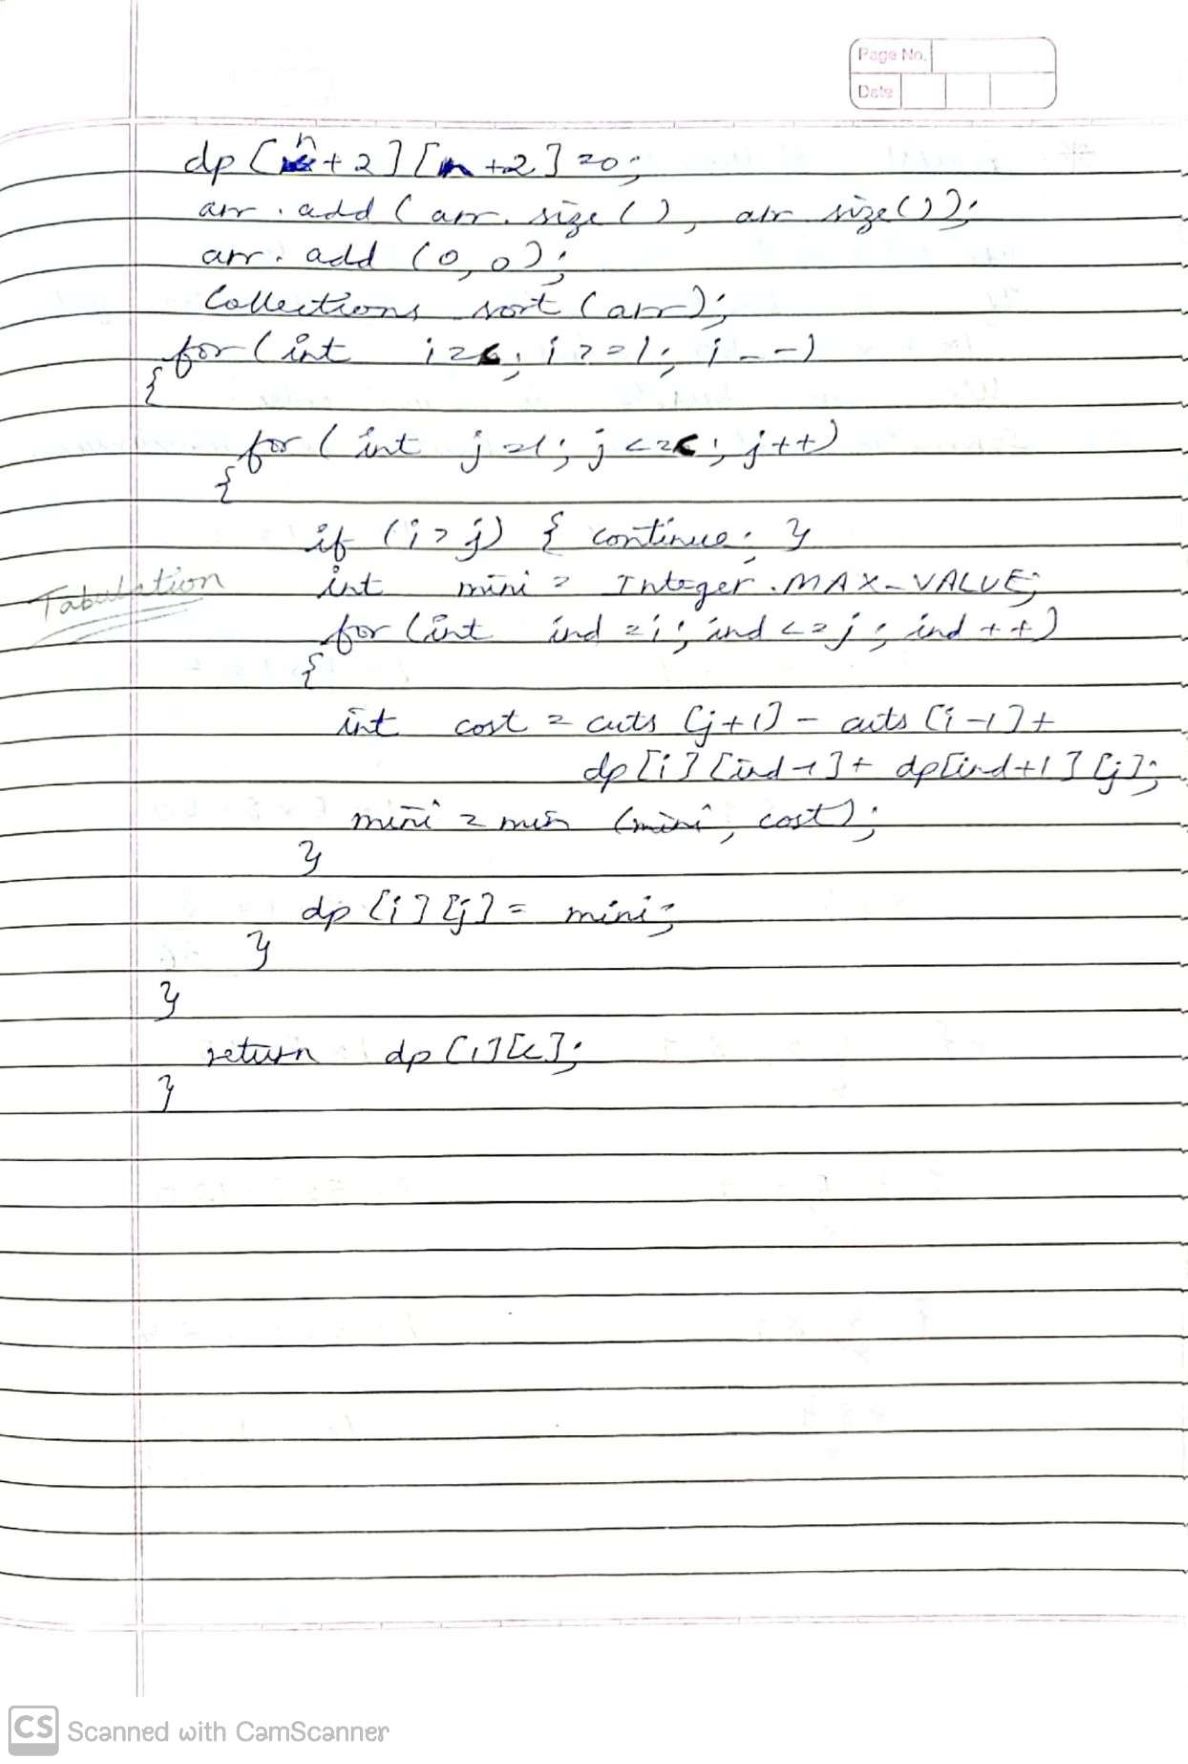 Page No.
Date
dp [n+2][n+2]=0;
arr. add (arr. size(), arr size());
arr. add (0,0);
Collections sort (arr);
for (int i=c; i>=1; i--)
{
for (int j=1; j<=c; j++)
{
if (i>j) { continue; }
Tabulation
int mini = Integer.MAX_VALUE;
for (int ind =i; ind<=j; ind++)
{
int cost = cuts [j+1] - cuts [i-1]+
dp[i][ind-1]+ dp[ind+1][j];
mini = min (mini, cost);
}
dp [i][j] = mini;
}
}
return dp[1][c];
}
CS Scanned with CamScanner